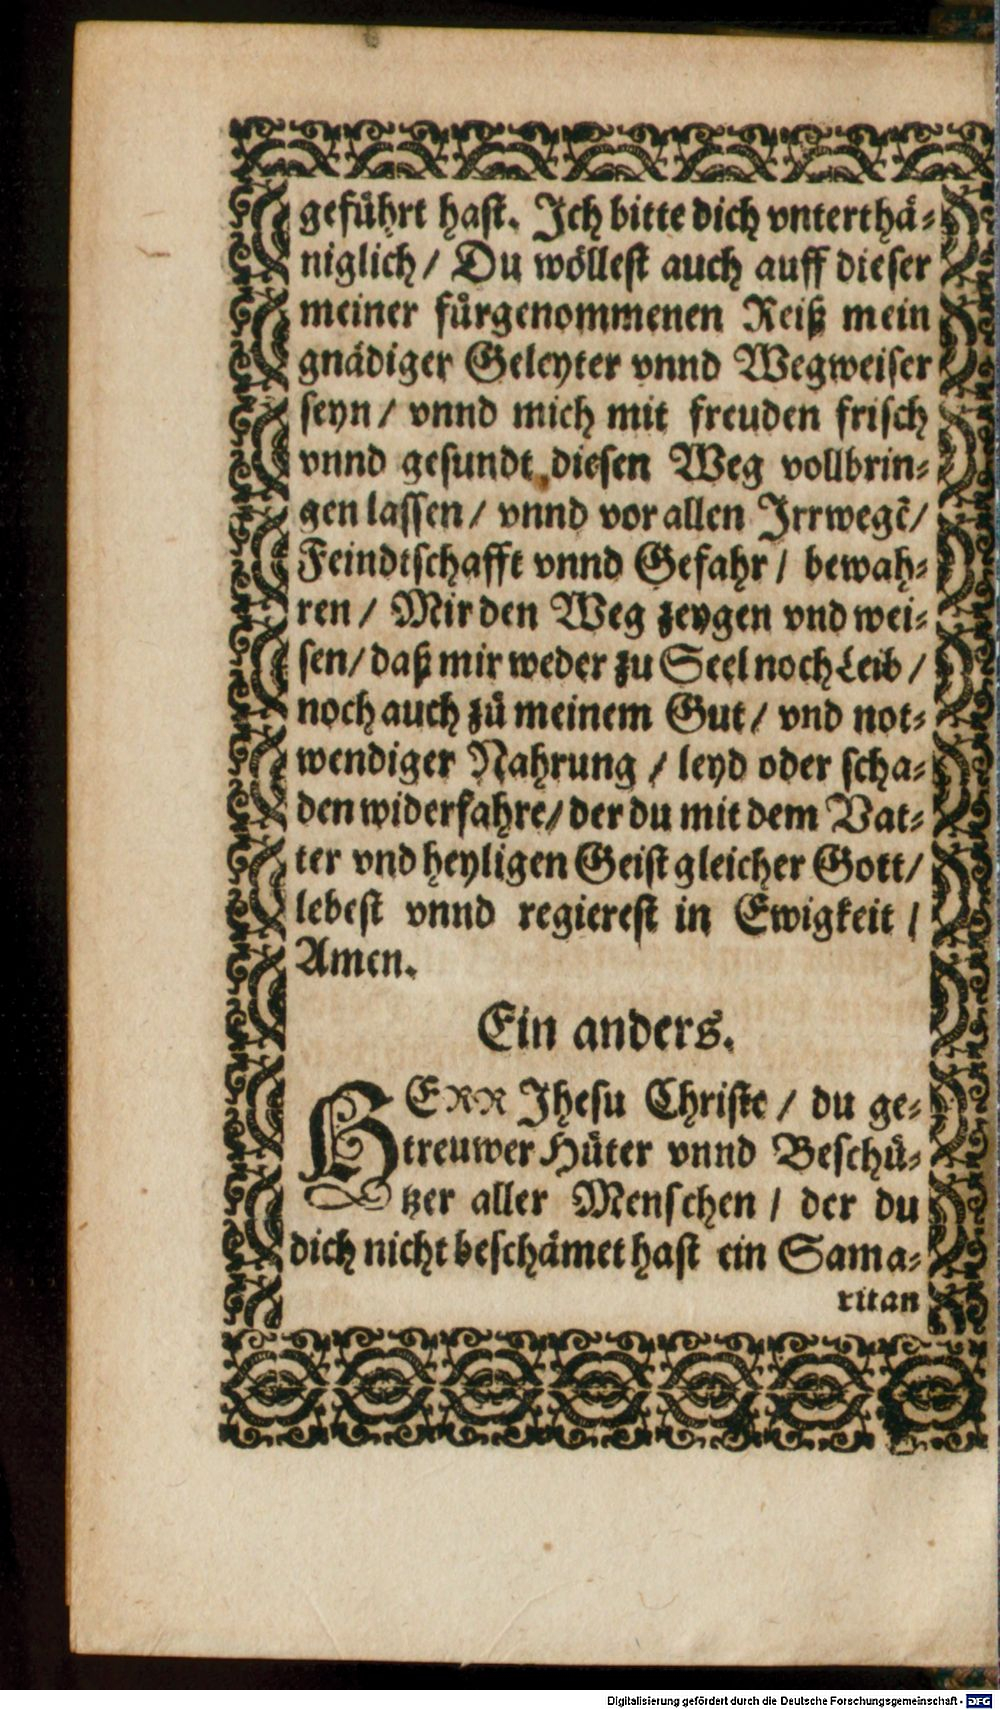 gefuͤhrt hast. Ich bitte dich vnterthaͤ-
niglich / Du woͤllest auch auff dieser
meiner fuͤrgenommenen Reiß mein
gnaͤdiger Geleyter vnnd Wegweiser
seyn / vnnd mich mit freuden frisch
vnnd gesundt diesen Weg vollbrin-
gen lassen / vnnd vor allen Irrwegẽ /
Feindtschafft vnnd Gefahr / bewah-
ren / Mir den Weg zeygen vnd wei-
sen / daß mir weder zu Seel noch Leib /
noch auch zů meinem Gut / vnd not-
wendiger Nahrung / leyd oder scha-
den widerfahre / der du mit dem Vat-
ter vnd heyligen Geist gleicher Gott /
lebest vnnd regierest in Ewigkeit /
Amen.
Ein anders.
HERR Jhesu Christe / du ge-
treuwer Huͤter vnnd Beschuͤ-
tzer aller Menschen / der du
dich nicht beschaͤmet hast ein Sama-
ritan
Digitalisierung gefördert durch die Deutsche Forschungsgemeinschaft - DFG